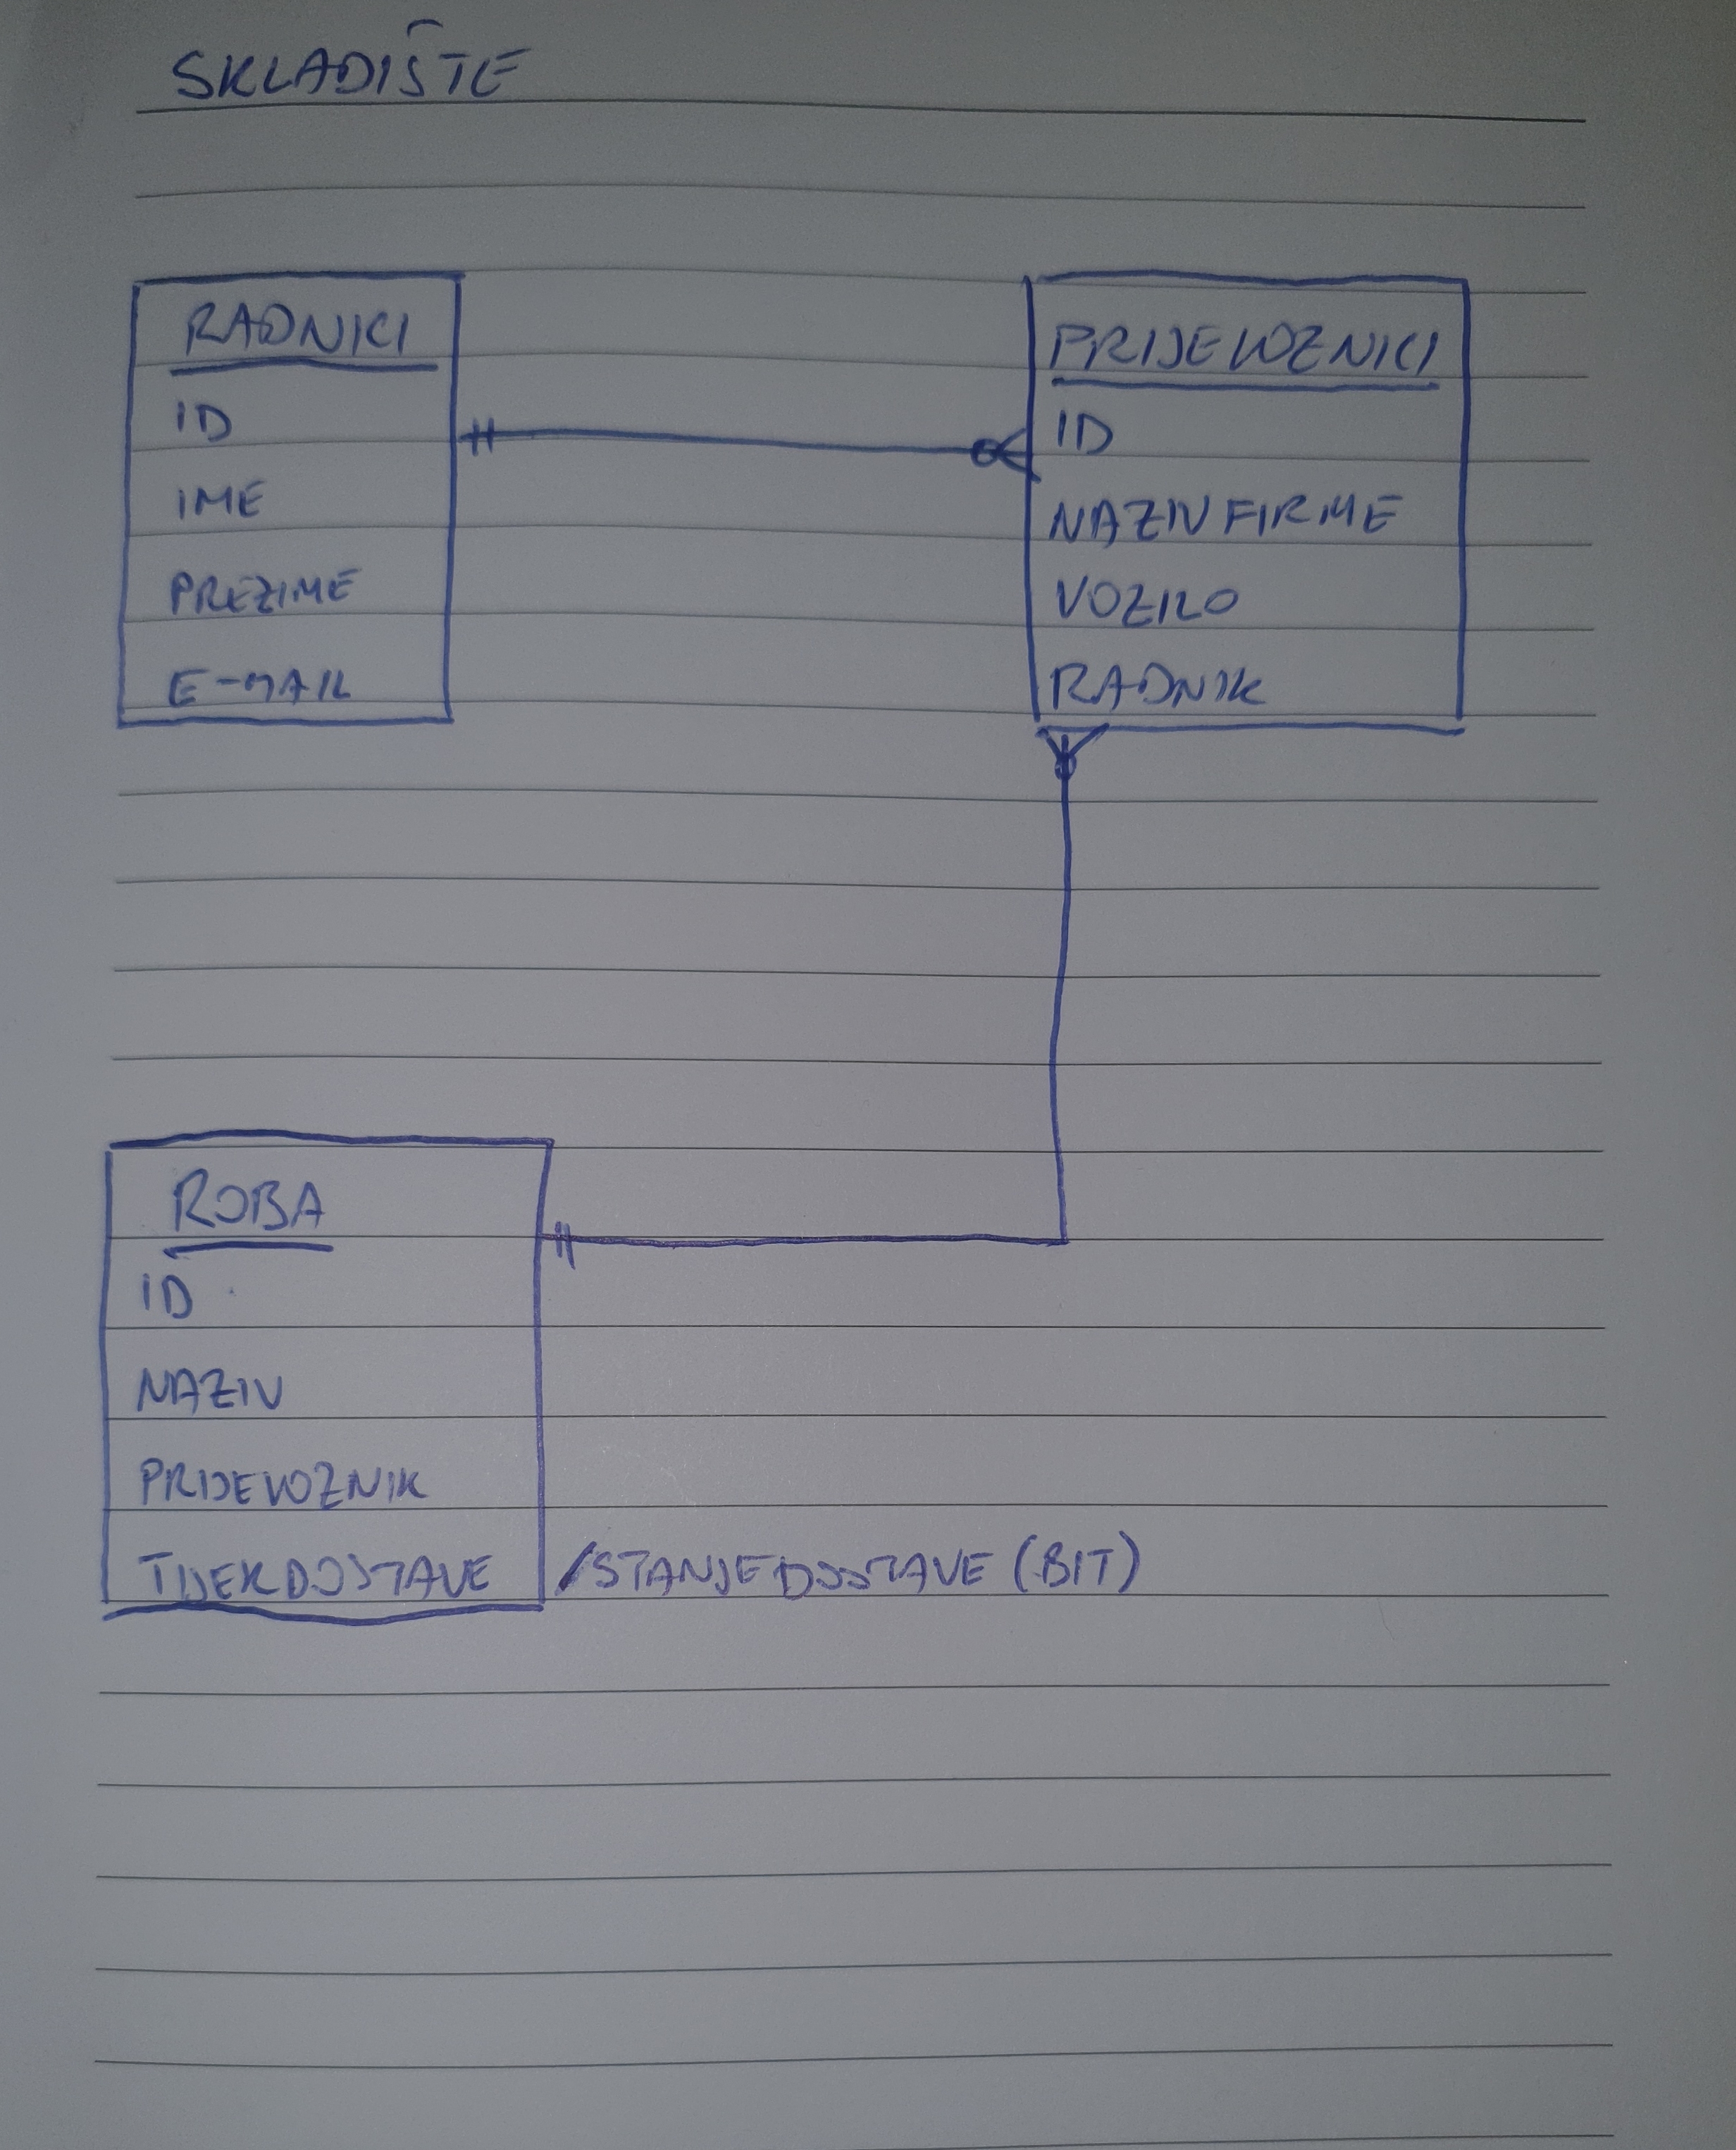 SKLADIŠTE
RADNICI
ID
IME
PREZIME
E-MAIL
PRIJEVOZNICI
ID
NAZIV FIRME
VOZILO
RADNIK
ROBA
ID
NAZIV
PRIJEVOZNIK
TIJEKDOSTAVE /STANJEDOSTAVE (BIT)